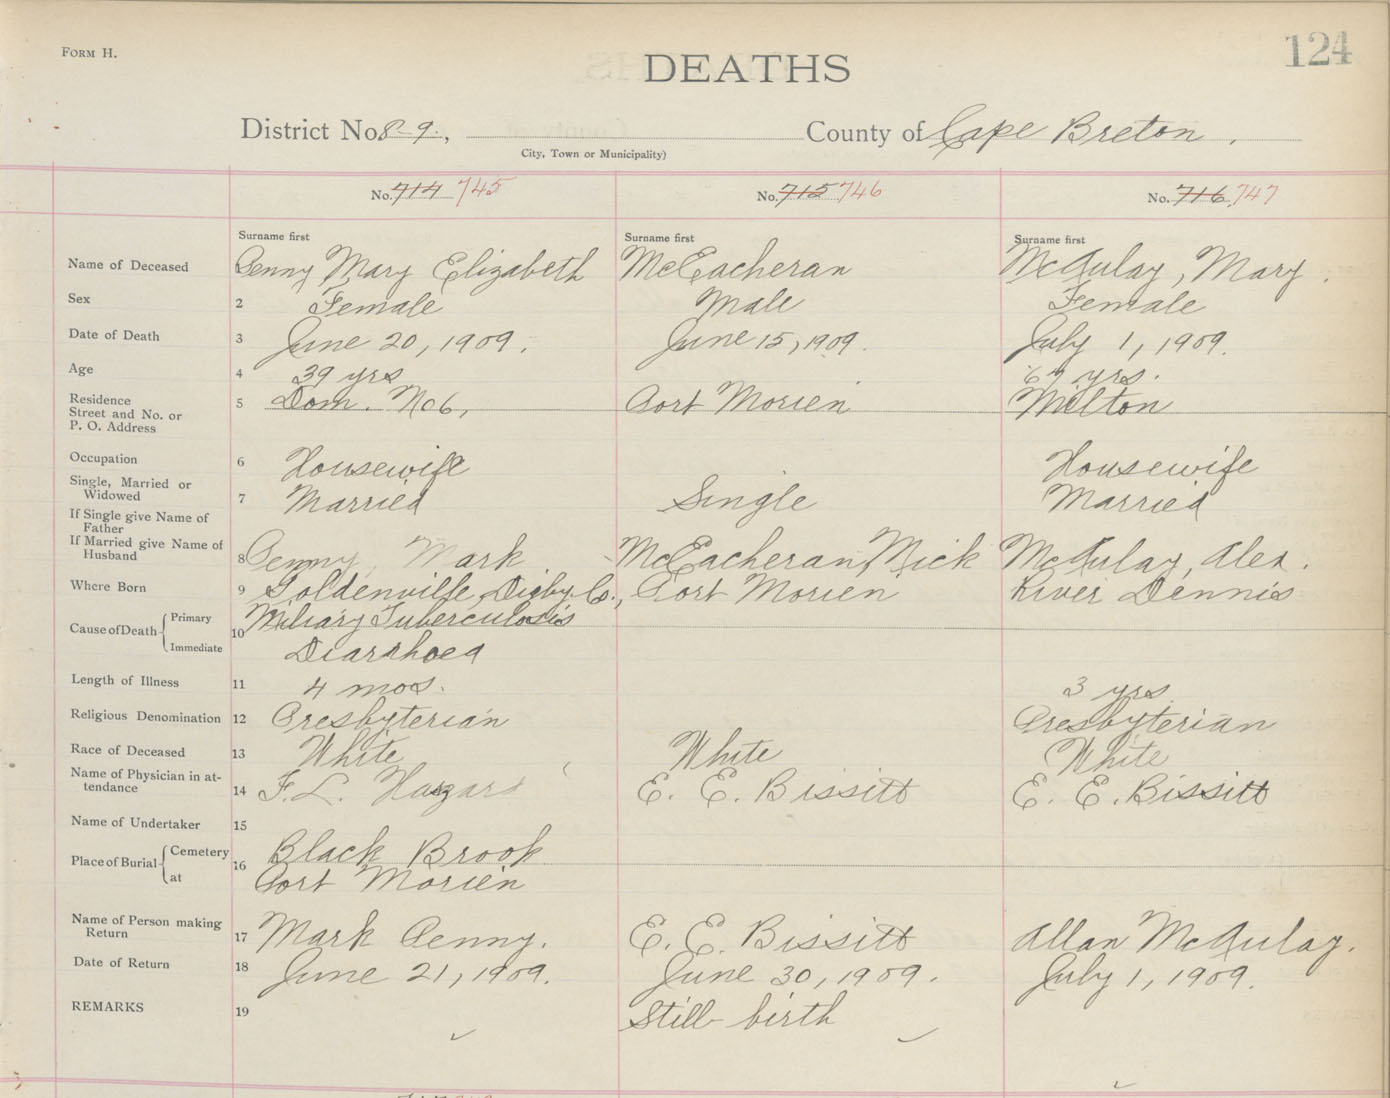 Form H.
124
DEATHS
District No 8-9., County of Cape Breton.
City, Town or Municipality)
No. 714 745 No. 715 746 No. 716 747
Surname first Surname first Surname first
Name of Deceased Penny Mary Elizabeth McEacheran McAulay, Mary.
Sex 2 Female Male Female
Date of Death 3 June 20, 1909. June 15, 1909. July 1, 1909.
Age 4 39 yrs yrs.
Residence 5 Dom. No 6, Port Morien Milton
Street and No. or
P. O. Address
Occupation 6 Housewife Housewife
Single, Married or
Widowed 7 Married Single Married
If Single give Name of
Father
If Married give Name of
Husband 8 Penny, Mark McEacheran, Mick McAulay, Alex.
Where Born 9 Goldenville, Digby Co., Port Morien River Dennis
Cause of Death Primary 10 Miliary Tuberculosis
Immediate Diarrhoea
Length of Illness 11 4 mos. 3 yrs
Religious Denomination 12 Presbyterian Presbyterian
Race of Deceased 13 White White White
Name of Physician in at-
tendance 14 F. L. Hazard E. E. Bissitt E. E. Bissitt
Name of Undertaker 15
Place of Burial Cemetery 16 Black Brook
at Port Morien
Name of Person making
Return 17 Mark Penny. E. E. Bissitt Allan McAulay.
Date of Return 18 June 21, 1909. June 30, 1909. July 1, 1909.
REMARKS 19 Still-birth